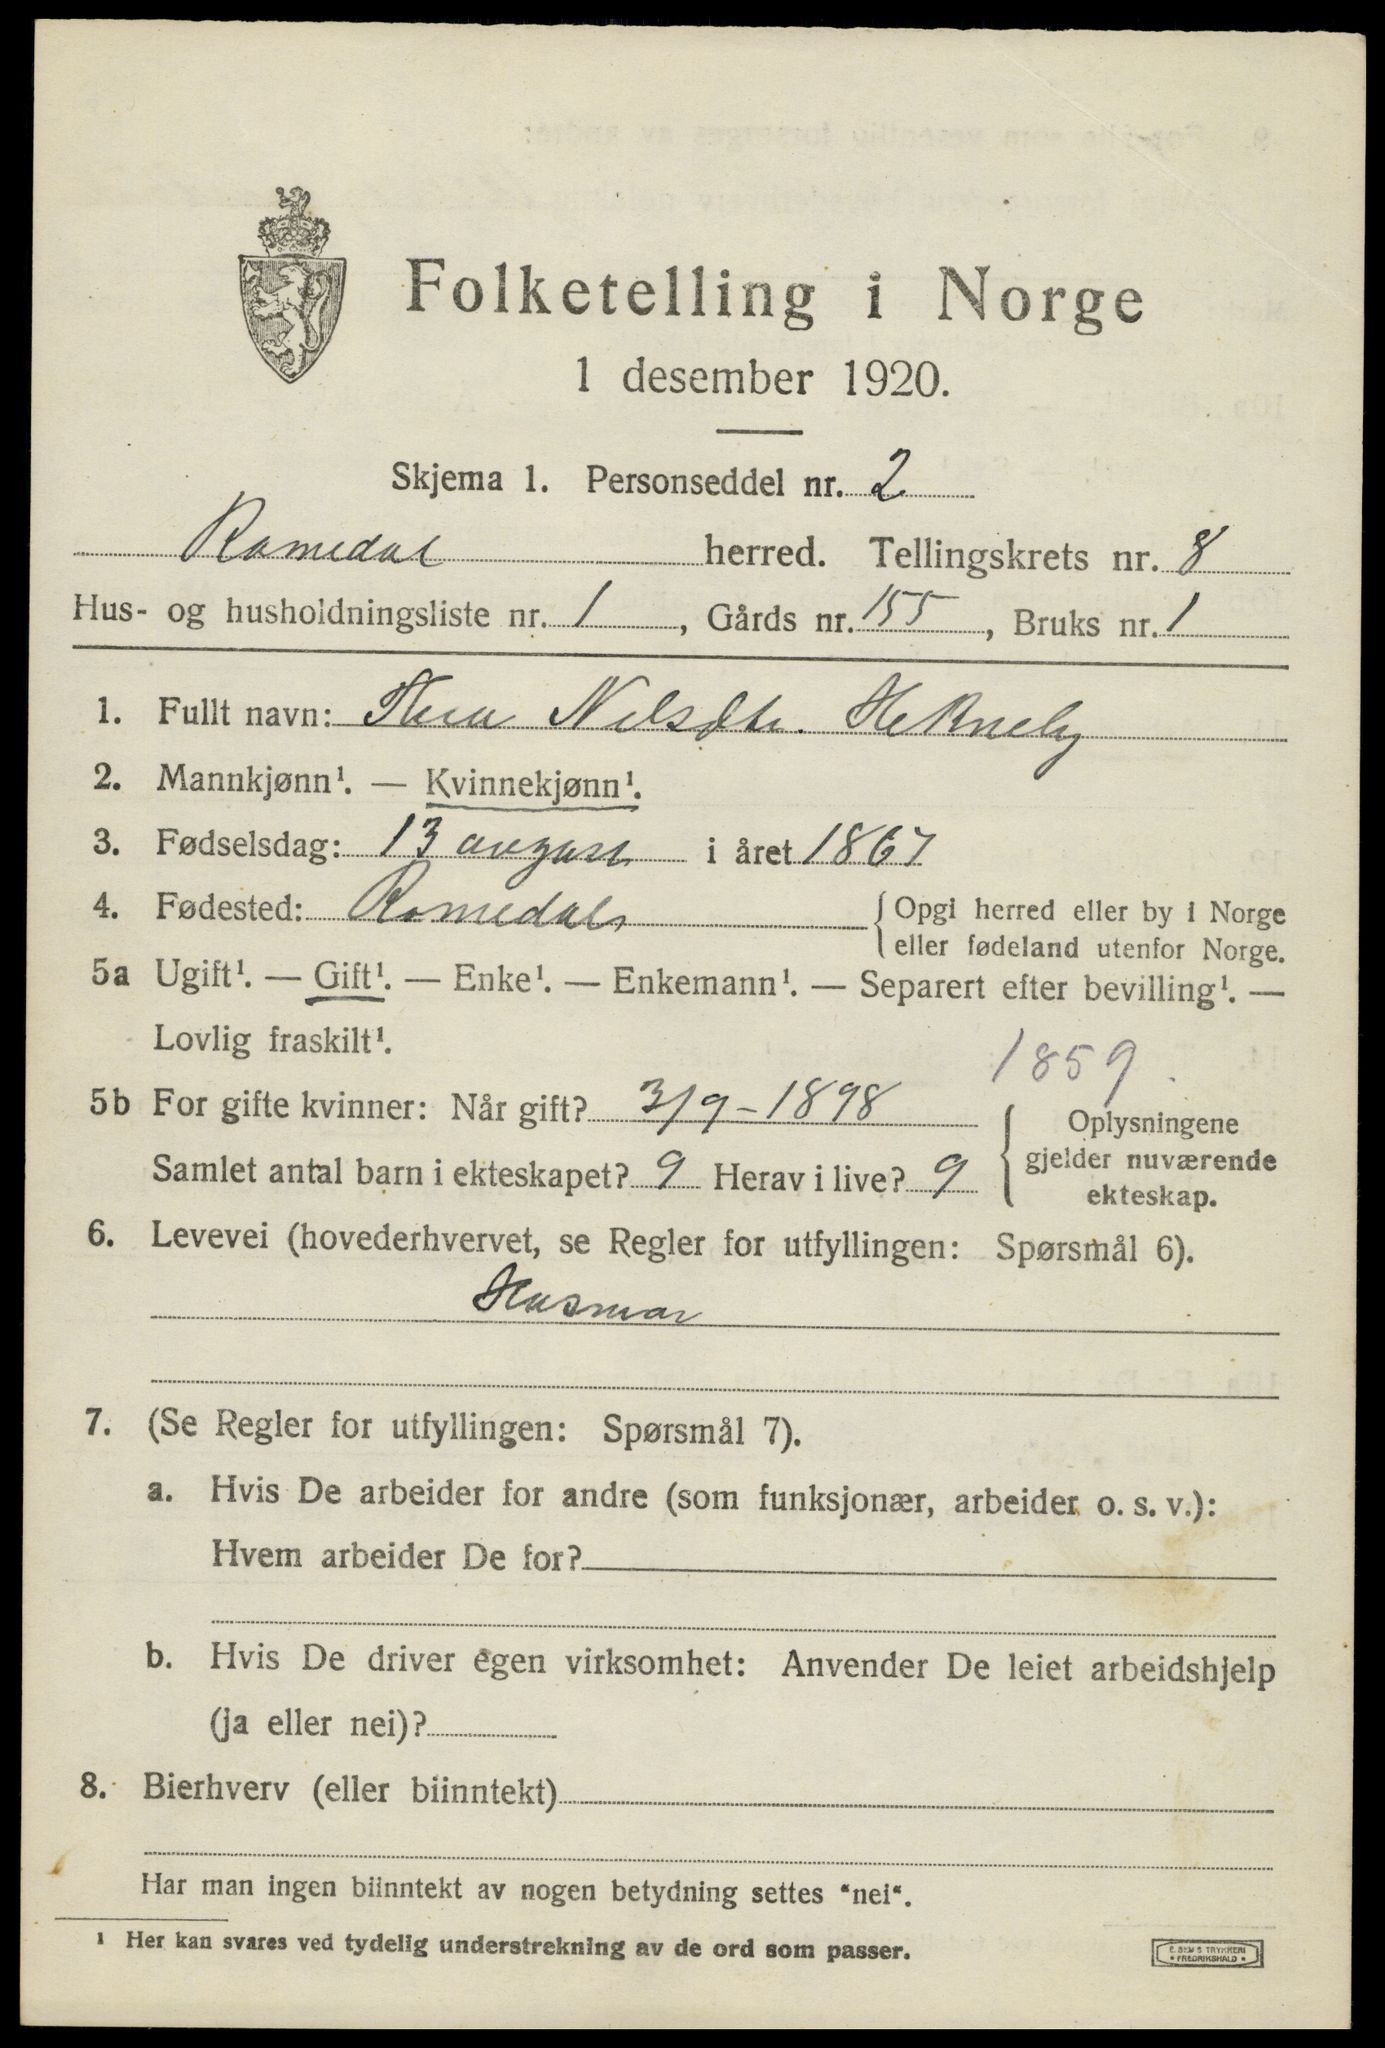 Folketelling i Norge
1 desember 1920.
Skjema 1. Personseddel nr. 2
Romedal herred. Tellingskrets nr. 8
Hus- og husholdningsliste nr. 1, Gårds nr. 155, Bruks nr. 1
1. Fullt navn: Thea Nilsdtr. Hekneby
2. Mannkjønn¹. — Kvinnekjønn¹.
3. Fødselsdag: 13 august i året 1867
4. Fødested: Romedal {Opgi herred eller by i Norge
eller fødeland utenfor Norge.
5a Ugift¹. — Gift¹. — Enke¹. — Enkemann¹. — Separert efter bevilling¹. —
Lovlig fraskilt¹.
1859.
5b For gifte kvinner: Når gift? 3/9-1898
Samlet antal barn i ekteskapet? 9 Herav i live? 9
{ Oplysningene
gjelder nuværende
ekteskap.
6. Levevei (hovederhvervet, se Regler for utfyllingen: Spørsmål 6).
Husmor
7. (Se Regler for utfyllingen: Spørsmål 7).
a. Hvis De arbeider for andre (som funksjonær, arbeider o. s. v.):
Hvem arbeider De for?
b. Hvis De driver egen virksomhet: Anvender De leiet arbeidshjelp
(ja eller nei)?
8. Bierhverv (eller biinntekt)
Har man ingen biinntekt av nogen betydning settes "nei".
¹ Her kan svares ved tydelig understrekning av de ord som passer.
E. SEM'S TRYKKERI
• FREDRIKSHALD •